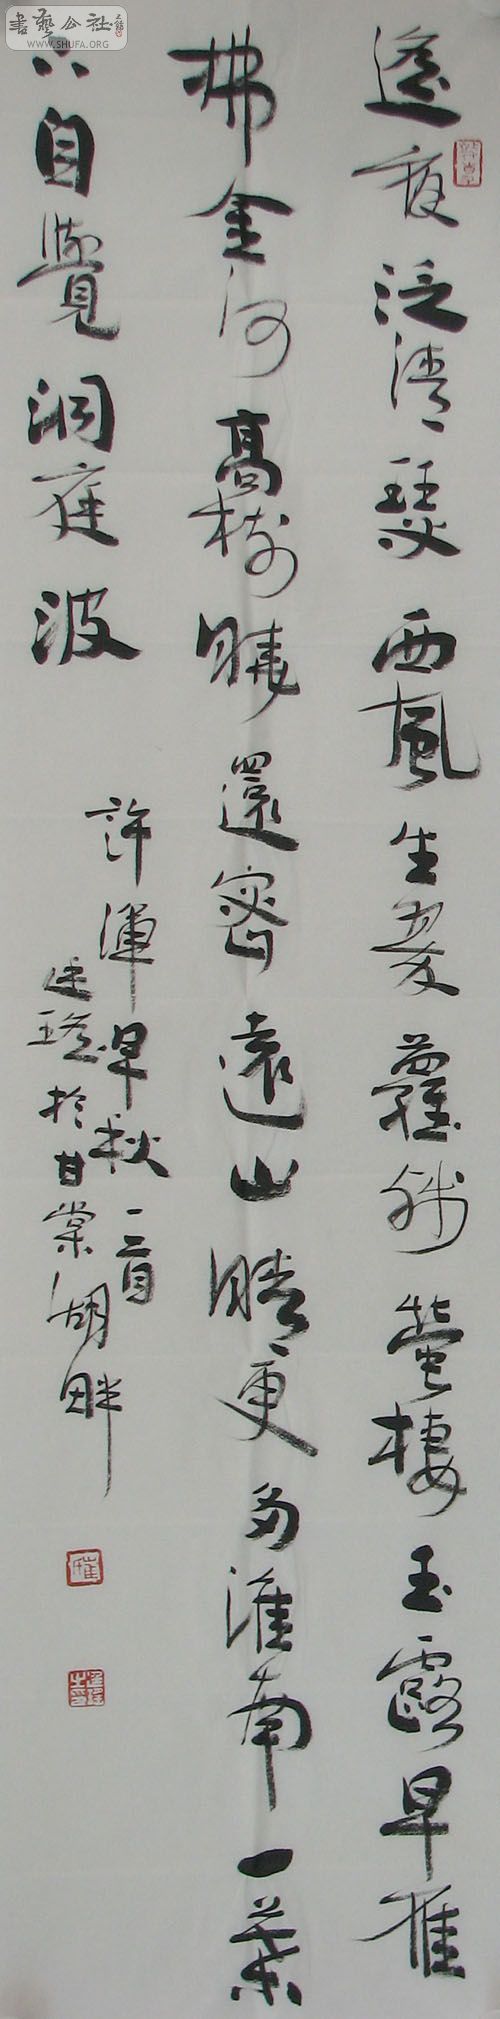 書藝公社
WWW.SHUFA.ORG
遙夜泛清瑟西風生翠蘿殘螢棲玉露早雁
拂金河高樹曉還密遠山晴更多淮南一葉
下自覺洞庭波
許渾早秋一首
於甘棠湖畔